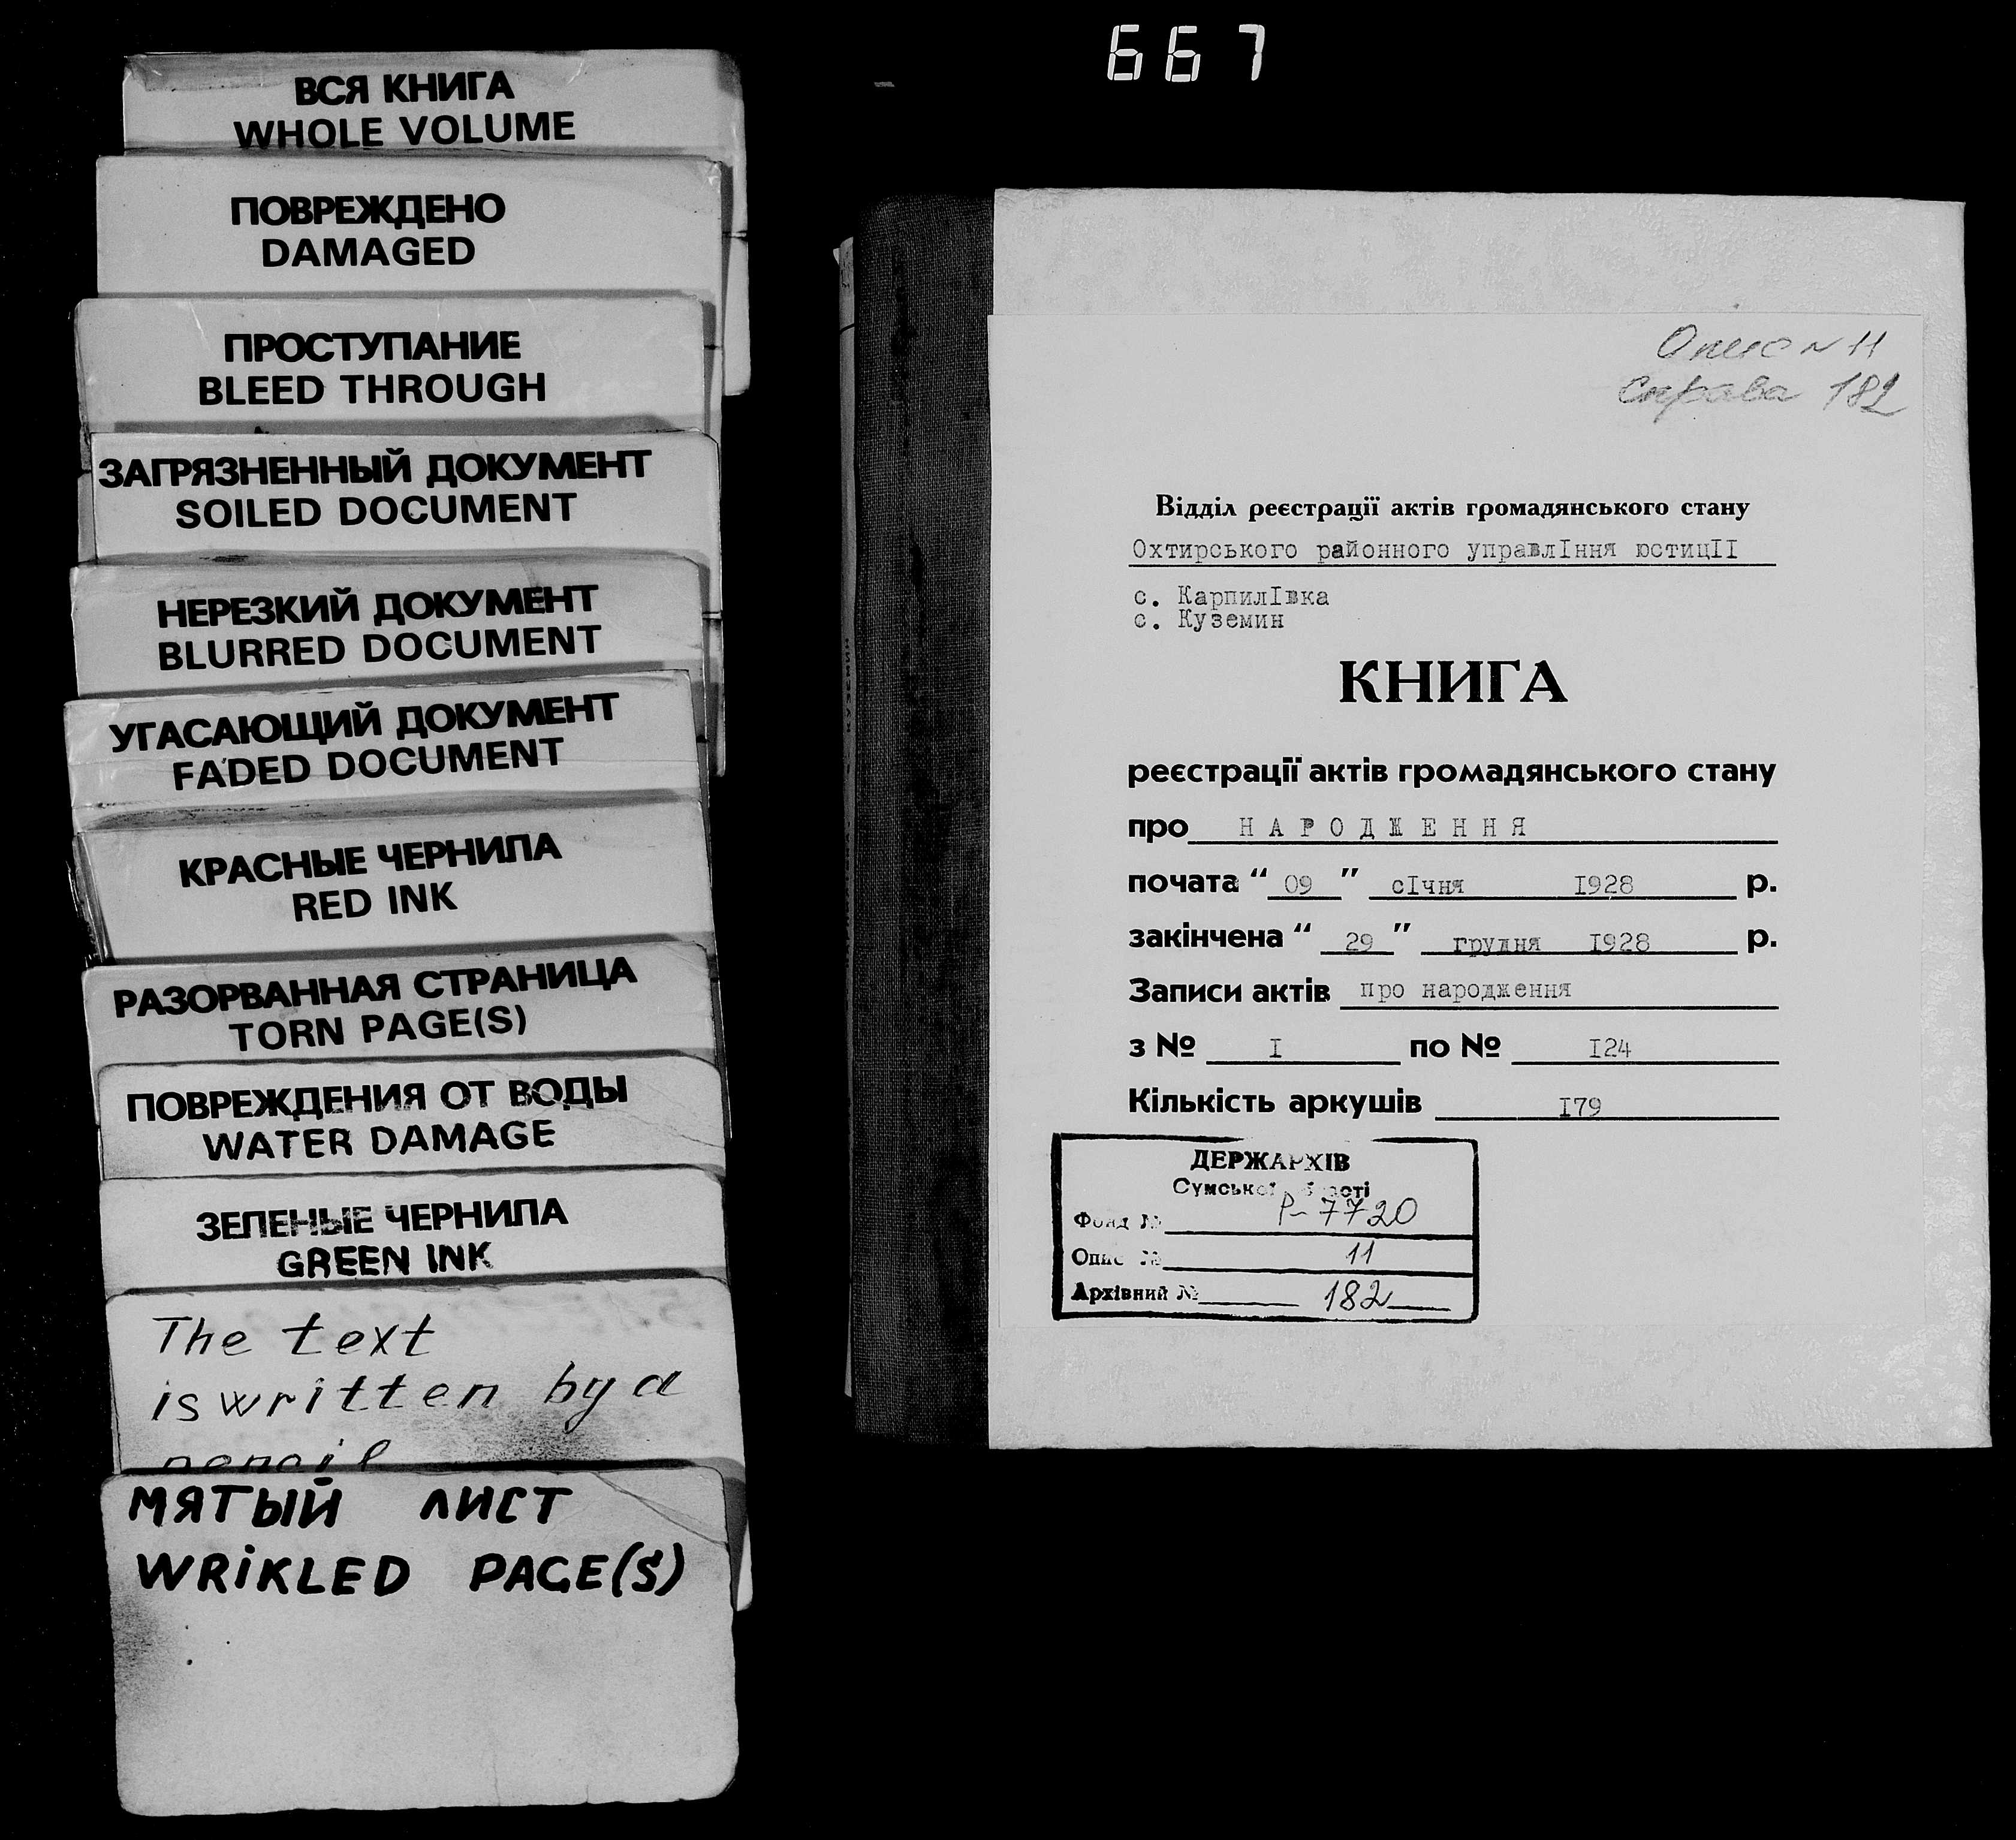 667
ВСЯ КНИГА
WHOLE VOLUME
ПОВРЕЖДЕНО
DAMAGED
ПРОСТУПАНИЕ
BLEED THROUGH
ЗАГРЯЗНЕННЫЙ ДОКУМЕНТ
SOILED DOCUMENT
НЕРЕЗКИЙ ДОКУМЕНТ
BLURRED DOCUMENT
УГАСАЮЩИЙ ДОКУМЕНТ
FADED DOCUMENT
КРАСНЫЕ ЧЕРНИЛА
RED INK
РАЗОРВАННАЯ СТРАНИЦА
TORN PAGE(S)
ПОВРЕЖДЕНИЯ ОТ ВОДЫ
WATER DAMAGE
ЗЕЛЕНЫЕ ЧЕРНИЛА
GREEN INK
The text
is written by a
pencil
МЯТЫЙ ЛИСТ
WRIKLED PAGE(S)
Опис N 11
Справа 182
Відділ реєстрації актів громадянського стану
Охтирського районного управлІння юстицІІ
с. КарпилІвка
с. Куземин
КНИГА
реєстрації актів громадянського стану
про НАРОДЖЕННЯ
почата “ 09 ” сІчня I928 р.
закінчена “ 29 ” грудня I928 р.
Записи актів про народження
з № I по № I24
Кількість аркушів I79
ДЕРЖАРХІВ
Сумської області
Фонд № Р-7720
Опис № 11
Архівний № 182